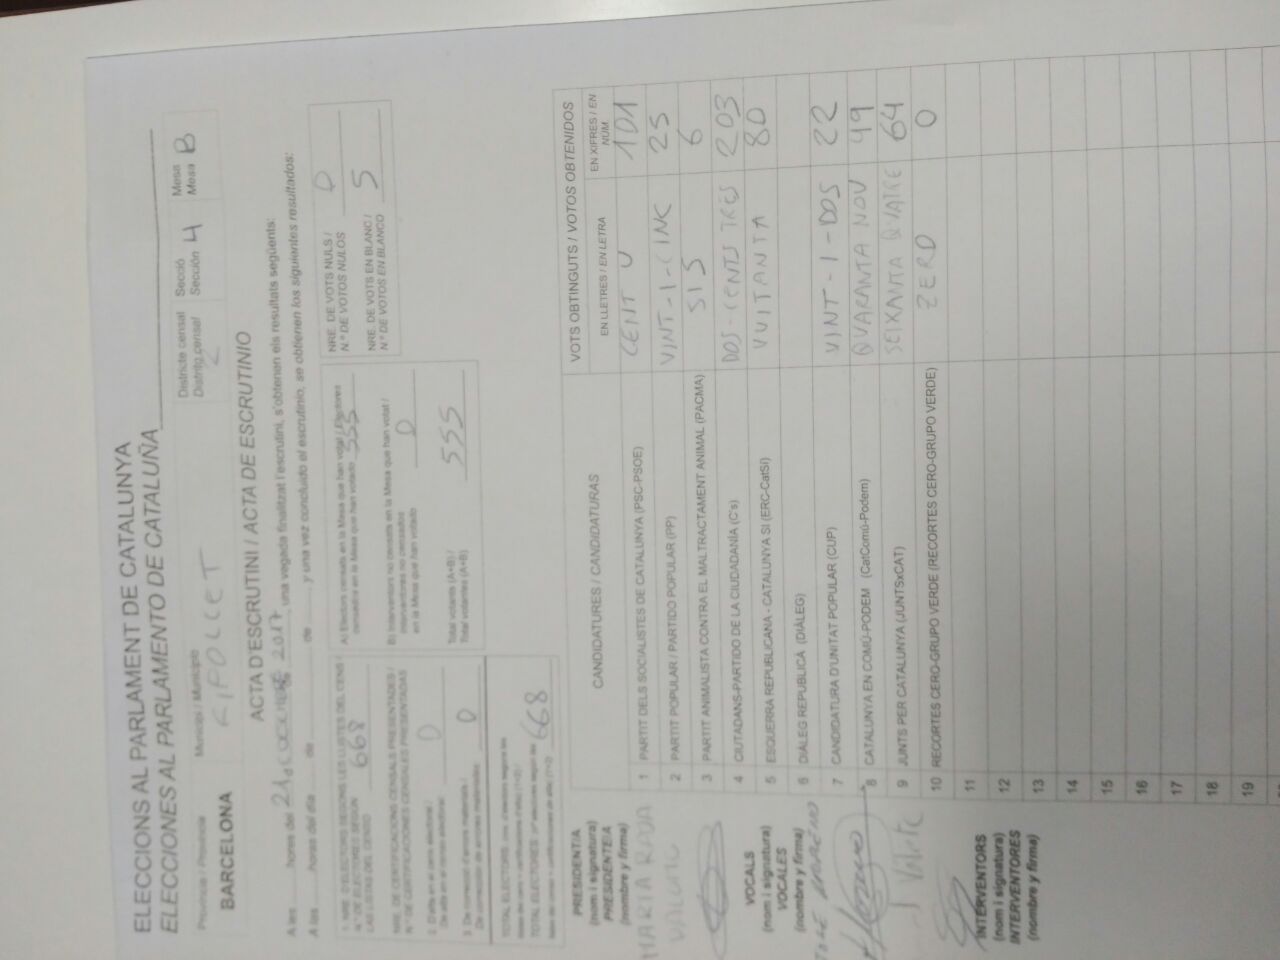 ELECCIONS AL PARLAMENT DE CATALUNYA
ELECCIONES AL PARLAMENTO DE CATALUÑA
Província / Provincia
BARCELONA
Municipi / Municipio
RIPOLLET
Districte censal
Distrito censal
2
Secció
Sección 4
Mesa
Mesa B
ACTA D'ESCRUTINI / ACTA DE ESCRUTINIO
A les hores del 21 de 2017, una vegada finalitzat l'escrutini, s'obtenen els resultats següents:
A las horas del día de de y una vez concluido el escrutinio, se obtienen los siguientes resultados:
1. NRE. D'ELECTORS SEGONS LES LLISTES DEL CENS /
N.º DE ELECTORES SEGÚN
LAS LISTAS DEL CENSO 668
NRE. DE CERTIFICACIONS CENSALS PRESENTADES /
N.º DE CERTIFICACIONES CENSALES PRESENTADAS
2. D'alta en el cens electoral /
De alta en el censo electoral 0
3. De correcció d'errors materials /
De corrección de errores materiales 0
TOTAL ELECTORS
TOTAL ELECTORES
668
A) Electors censats en la Mesa que han votat / Electores
censados en la Mesa que han votado 555
B) Interventors no censats en la Mesa que han votat /
Interventores no censados
en la Mesa que han votado 0
Total votants (A+B) /
Total votantes (A+B) 555
NRE. DE VOTS NULS /
N.º DE VOTOS NULOS 0
NRE. DE VOTS EN BLANC /
N.º DE VOTOS EN BLANCO 5
CANDIDATURES / CANDIDATURAS
VOTS OBTINGUTS / VOTOS OBTENIDOS
EN LLETRES / EN LETRA
EN XIFRES / EN
NÚM
1 PARTIT DELS SOCIALISTES DE CATALUNYA (PSC-PSOE) CENT U 101
2 PARTIT POPULAR / PARTIDO POPULAR (PP) VINT-I-CINC 25
3 PARTIT ANIMALISTA CONTRA EL MALTRACTAMENT ANIMAL (PACMA) SIS 6
4 CIUTADANS-PARTIDO DE LA CIUDADANÍA (C's) DOS-CENTS TRES 203
5 ESQUERRA REPUBLICANA - CATALUNYA SI (ERC-CatSí) VUITANTA 80
6 DIÀLEG REPUBLICÀ (DIÀLEG)
7 CANDIDATURA D'UNITAT POPULAR (CUP) VINT-I-DOS 22
8 CATALUNYA EN COMÚ-PODEM (CatComú-Podem) QUARANTA NOU 49
9 JUNTS PER CATALUNYA (JUNTSxCAT) SEIXANTA QUATRE 64
10 RECORTES CERO-GRUPO VERDE (RECORTES CERO-GRUPO VERDE) ZERO 0
11
12
13
14
15
16
17
18
19
PRESIDENT/A
(nom i signatura)
PRESIDENTE/A
(nombre y firma)
MARIA
VOCALS
(nom i signatura)
VOCALES
(nombre y firma)
JOSE MORENO
INTERVENTORS
(nom i signatura)
INTERVENTORES
(nombre y firma)